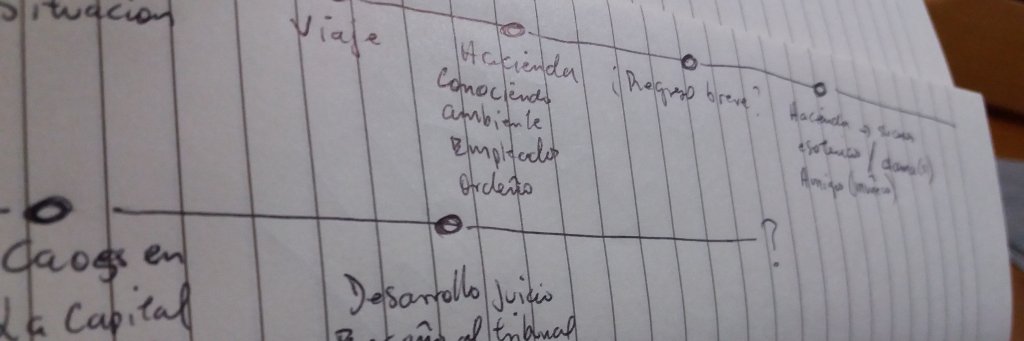 Situación
Viaje
Hacienda
Conociendo
ambiente
Empleados
Ordeño
¿Regreso breve?
Hacienda →
Amigo
?
Caos en
La Capital
Desarrollo juicio
al tribunal